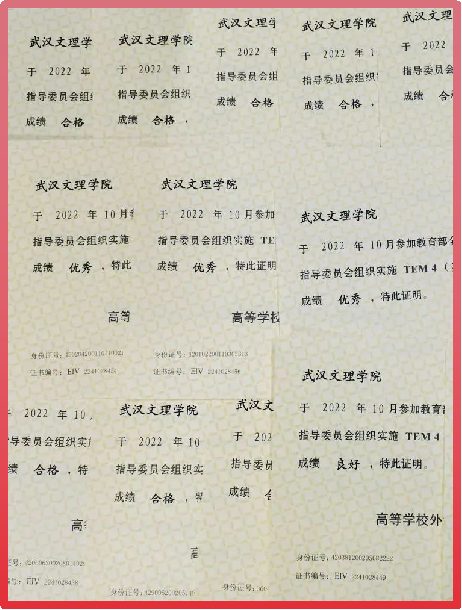 武汉文理学
于 2022 年
指导委员会组
成绩 合格
武汉文理学院
于 2022 年 1
指导委员会组织
成绩 合格 ，
武汉文理学
于 2022 年
指导委员会组
成绩 合格
武汉文理学院
于 2022 年 1
指导委员会组织
成绩 合格 ，
武汉文理
于 2022
指导委员会
成绩 合
武汉文理学院
于 2022 年 10 月
指导委员会组织实施
成绩 优秀 ，特此
高等
身份证号：
证书编号： EIV
武汉文理学院
于 2022 年 10 月参加
指导委员会组织实施 TE
成绩 优秀 ，特此证明
高等学校
身份证号：
证书编号： EIV
武汉文理学院
于 2022 年 10 月参加教育部
指导委员会组织实施 TEM 4（
成绩 优秀 ，特此证明。
武汉文理学院
于 2022 年 10 月参加教育
指导委员会组织实施 TEM 4
成绩 良好 ，特此证明。
高等学校外
身份证号：
证书编号： EIV
于 2022 年 10
导委员会组织实
绩 合格 ，特
高
证号：
号： EIV
武汉文理学院
于 2022 年 10
指导委员会组织实
成绩 合格 ，
身份证号：
武汉文
于 202
指导委员
成绩
身份证号：